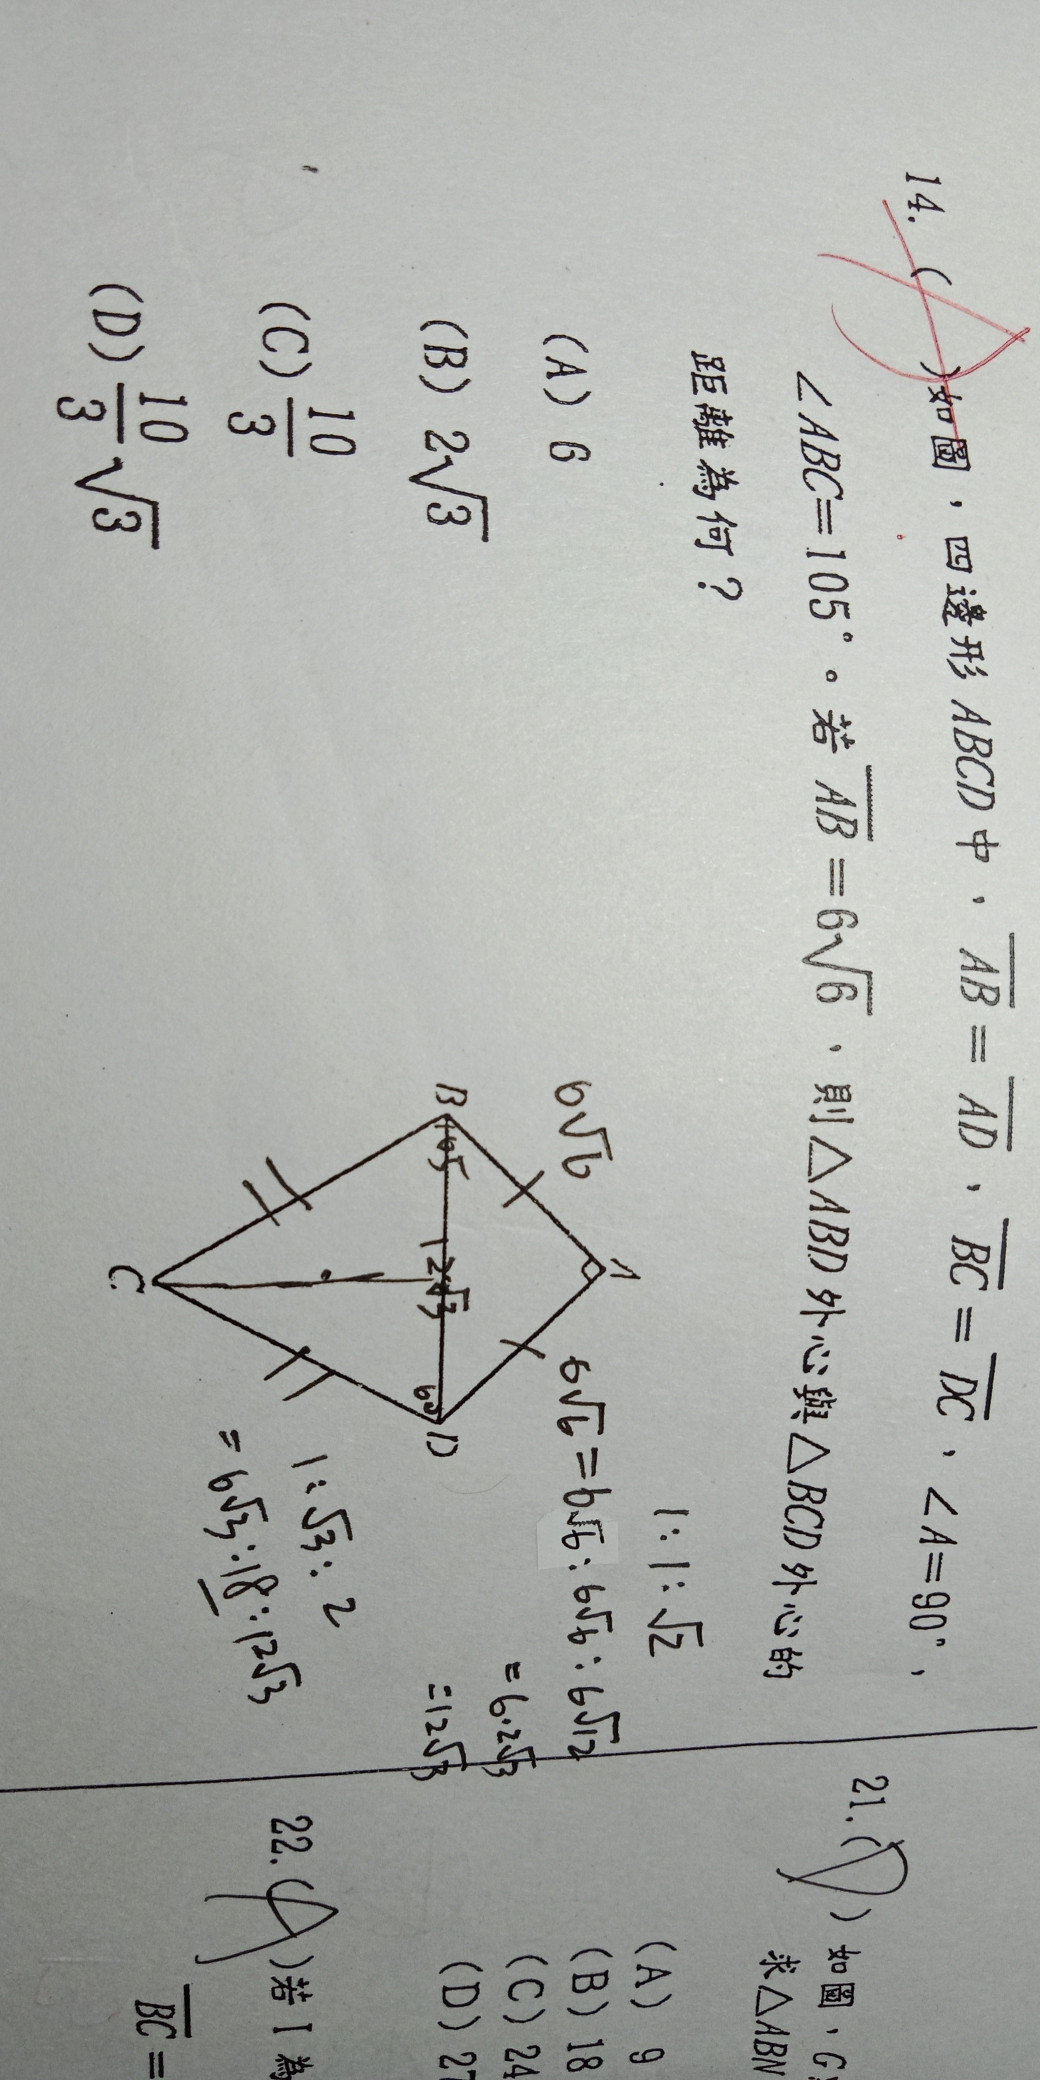 14. ( A )如圖，四邊形ABCD中，AB=AD，BC=DC，∠A=90°，
∠ABC=105°。若AB=6√6，則△ABD外心與△BCD外心的
距離為何？
(A) 6
(B) 2√3
(C) 10/3
(D) 10/3 √3
A
6√6
B
105
12√3
60
D
C
1:1:√2
6√6=6√6:6√6:6√12
=6·2√3
=12√3
1:√3:2
=6√3:18:12√3
21. ( D ) 如圖，G
求△ABN
(A) 9
(B) 18
(C) 24
(D) 27
22. ( A )若I為
BC=